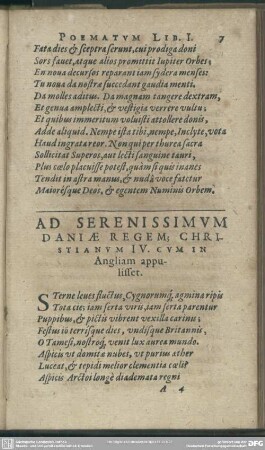 POEMATVM LIB. I. 7
Fata dies & sceptra ferunt, cui prodiga doni
Sors favet, atque alios promittit Iupiter Orbes;
En nova decursos reparant iam sydera menses:
Tu nova da nostra succedant gaudia menti.
Da molles aditus. Da magnam tangere dextram,
Et genua amplecti, & vestigia verrere vultu;
Et quibus immeritum voluisti attollere donis,
Adde aliquid. Nempe ista tibi, nempe, Inclyte, vota
Haud ingrata reor. Non qui per thurea sacra
Sollicitat Superos, aut lecti sanguine tauri,
Plus cœlo placuisse potest, quàm si quis inanes
Tendit in astra manus, & nudâ voce fatetur
Maiorésque Deos, & egentem Numinis Orbem.
AD SERENISSIMVM
DANIÆ REGEM, CHRI-
STIANVM IV. CVM IN
Angliam appu-
lisset.
STerne leves fluctus, Cygnorumq́; agmina ripis
Tota cie; iam serta viris, iam serta parentur
Puppibus, & pictis vibrent vexilla carinis;
Festus iô terrisque dies, undisque Britannis,
O Tamesi, nostroq́; venit lux aurea mundo.
Aspicis ut domita nubes, ut purius æther
Luceat, & tepidi melior clementia cœli?
Aspicis Arctoi longè diademata regni
A 4